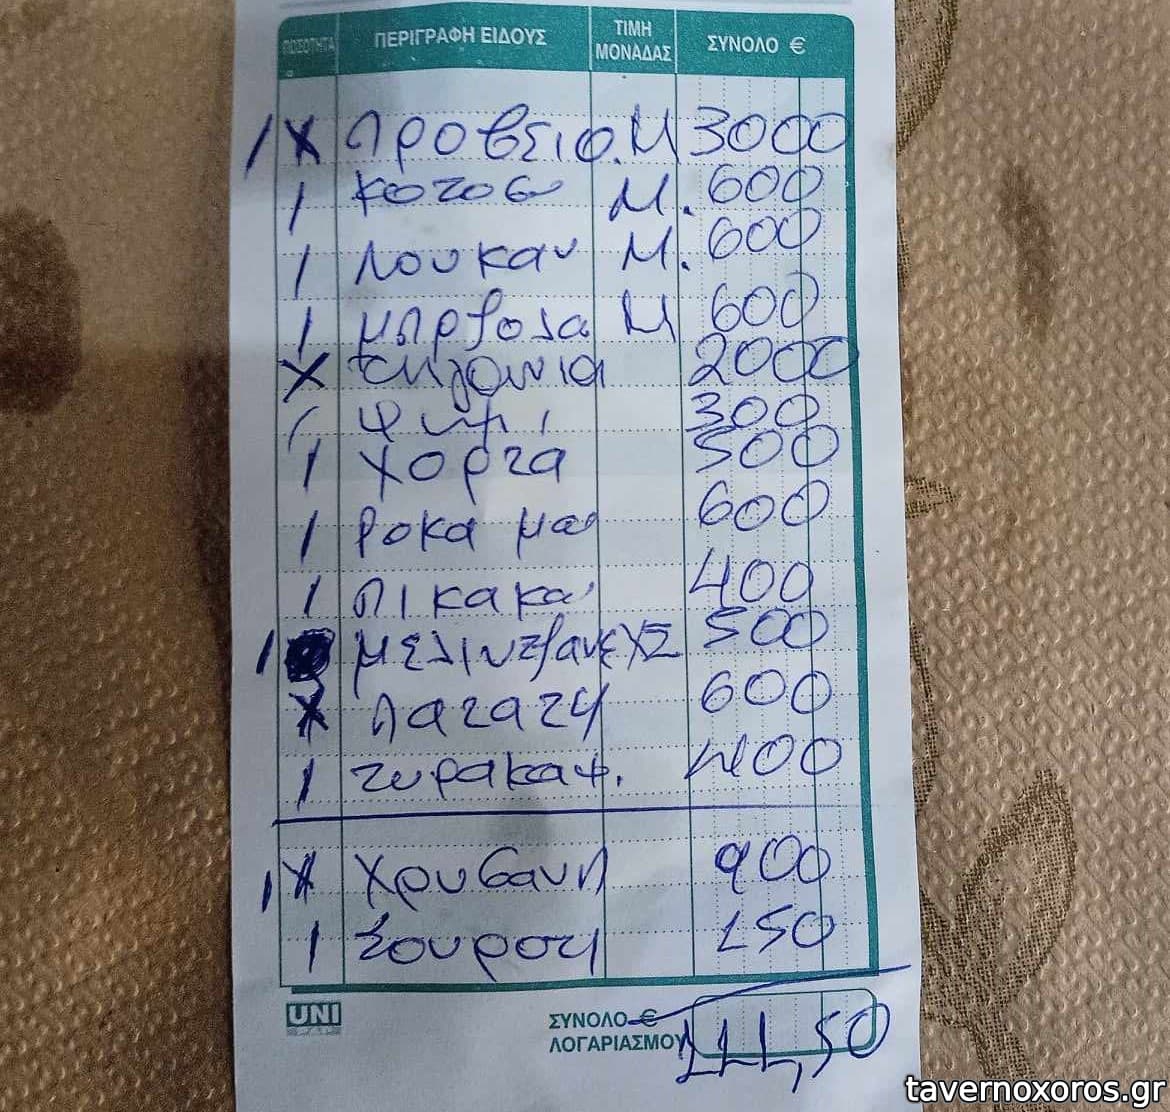 ΠΟΣΟΤΗΤΑ ΠΕΡΙΓΡΑΦΗ ΕΙΔΟΥΣ ΤΙΜΗ ΜΟΝΑΔΑΣ ΣΥΝΟΛΟ €
1 X προβειο. Μ 3000
1 κοτος Μ. 600
1 Λουκαν Μ. 600
1 μπρζολα Μ 600
X 2000
ψωμι 300
1 χορτα 500
1 Ροκα μας 600
1 πικακα 400
1 μελιντζανεΧΣ 500
X πατατ 600
1 τυρακαφ. 400
1 X Χρυσαυη 900
1 Σουρωτ 150
UNI
ΣΥΝΟΛΟ €
ΛΟΓΑΡΙΑΣΜΟΥ 111,50
tavernoxoros.gr